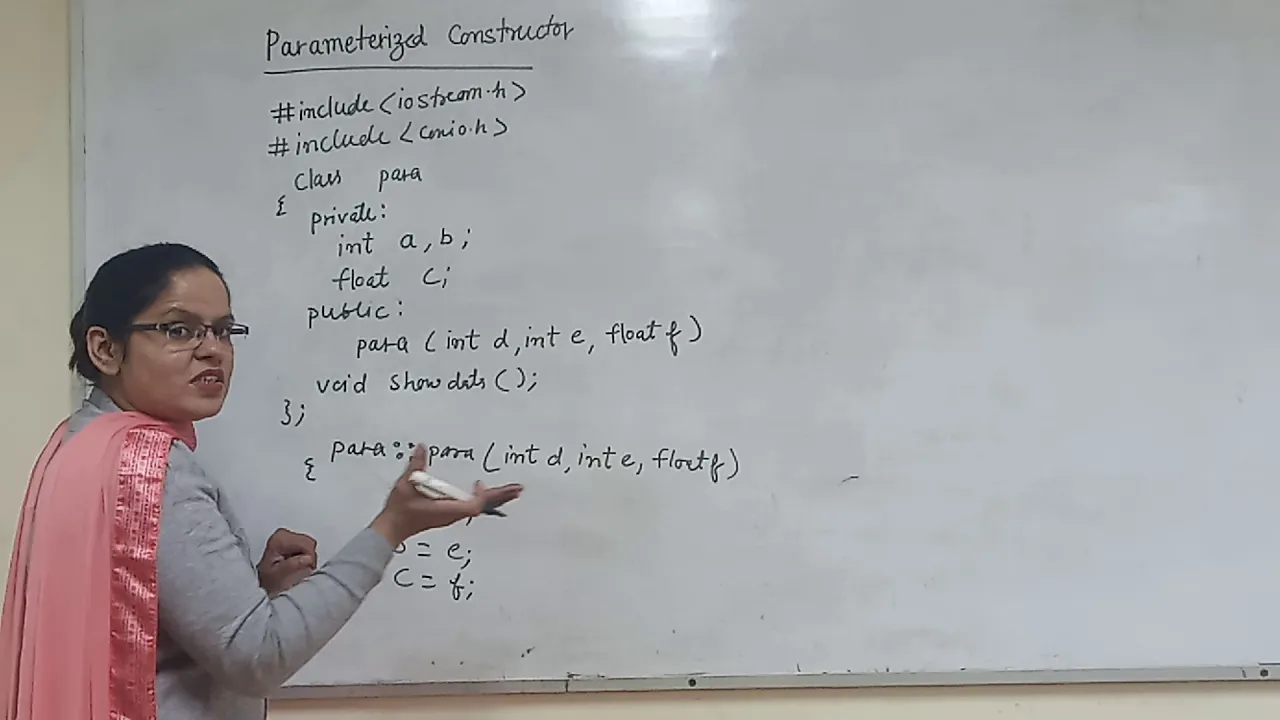 Parameterized Constructor
#include <iostream.h>
#include <conio.h>
class para
{
private:
int a, b;
float c;
public:
para (int d, int e, float f)
void show data ();
};
para :: para (int d, int e, float f)
{
;
= e;
c = f;